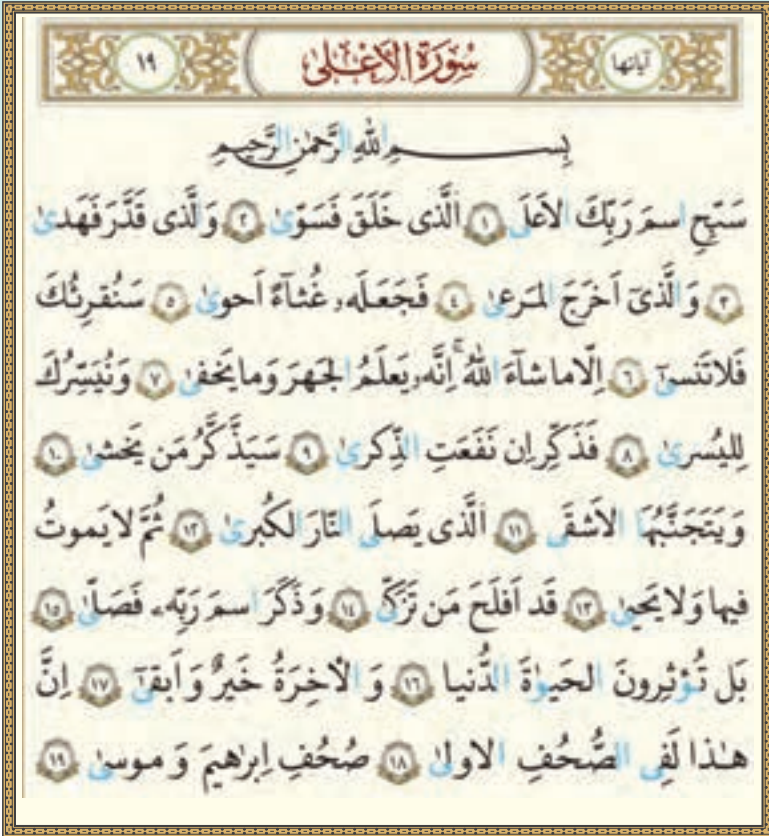 آياتها سُورَةُ الأَعْلىٰ ١٩
بِسـمِ اللهِ الرَّحمٰنِ الرَّحيمِ
سَبِّحِ اسمَ رَبِّكَ الاَعلَى ١ اَلَّذى خَلَقَ فَسَوّىٰ ٢ وَالَّذى قَدَّرَ فَهَدىٰ
٣ وَالَّذىٓ اَخرَجَ المَرعىٰ ٤ فَجَعَلَهۥ غُثآءً اَحوىٰ ٥ سَنُقرِئُكَ
فَلا تَنسىٰٓ ٦ اِلّا ما شآءَ اللهُ ۚ اِنَّهۥ يَعلَمُ الجَهرَ وَما يَخفىٰ ٧ وَنُيَسِّرُكَ
لِليُسرىٰ ٨ فَذَكِّر اِن نَفَعَتِ الذِّكرىٰ ٩ سَيَذَّكَّرُ مَن يَخشىٰ ١٠
وَيَتَجَنَّبُهَا الاَشقَى ١١ اَلَّذى يَصلَى النّارَ الكُبرىٰ ١٢ ثُمَّ لا يَموتُ
فيها وَلا يَحيىٰ ١٣ قَد اَفلَحَ مَن تَزَكّىٰ ١٤ وَذَكَرَ اسمَ رَبِّهۦ فَصَلّىٰ ١٥
بَل تُؤثِرونَ الحَيوٰةَ الدُّنيا ١٦ وَالآخِرَةُ خَيرٌ وَاَبقىٰٓ ١٧ اِنَّ
هـٰذا لَفِى الصُّحُفِ الاولىٰ ١٨ صُحُفِ اِبرٰهيمَ وَموسىٰ ١٩